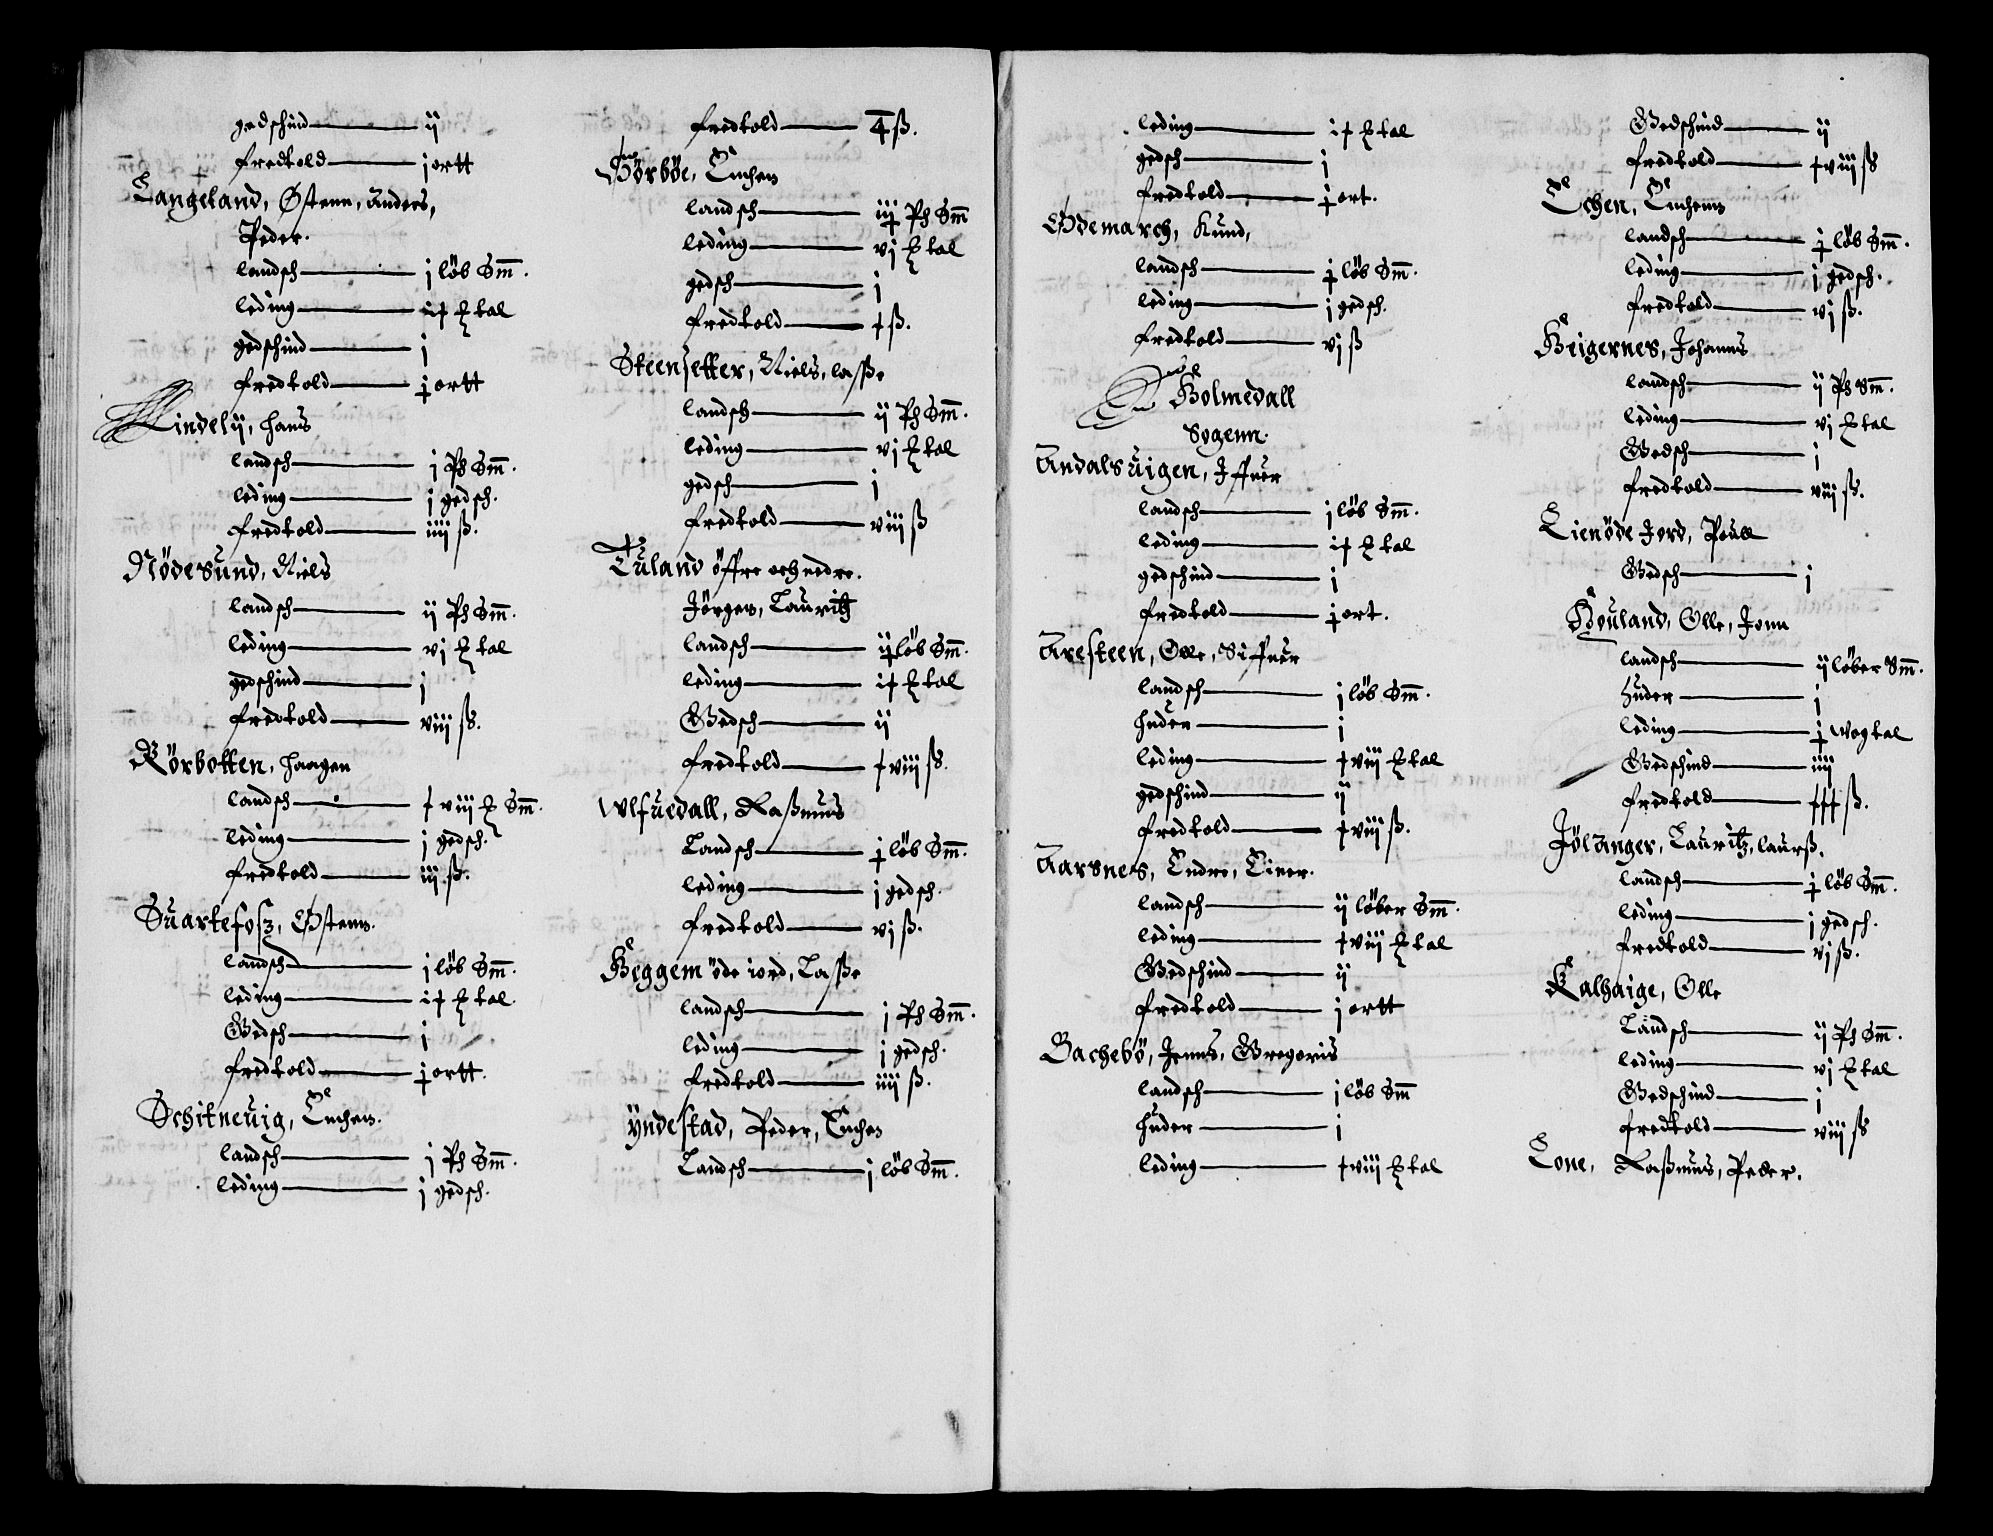 gedschind — ij
fredtold — j ortt
Langeland, Østenn, Anders,
Peder.
landsch — j löb Sm̄.
leding — i† ℔ tal
gedschind — j
fredtold — ɉ ortt
Lindelij, Hans
landsch — j Ph Sm̄.
leding — j gedsch.
fredtold — iiij ß.
Nödesund, Niels
landsch — ij Ph Sm̄.
leding — vj ℔ tal
gedschind — j
fredtold — viij ß.
Rörbotten, Haagen
landsch — † viij ℔ Sm̄.
leding — j gedsch.
fredtold — iij ß.
Suartefosz, Østenn.
landsch — j löb Sm̄.
leding — i† ℔ tal
Gedsch — j
fredtold — ɉ ortt.
Schitneuig, Enchen.
landsch — j Ph Sm̄.
leding — j gedsch.
fredtold — 4 ß.
Sörböe, Enchen
landsch — iiɉ Ph Sm̄
leding — vj ℔ tal
gedsch — j
fredtold — † ß.
Steensetter, Niels, lasse
landsch — ij Ph Sm̄.
leding — vj ℔ tal
gedsch — j
fredtold — viij ß
Tuland öffre och nedre.
Jörgen, Lauritz
landsch — iɉ löb Sm̄.
leding — i† ℔ tal
Gedsch — ij
fredtold — † viij ß.
Vlfuedall, Rasmus
Landsch — ɉ löb Sm̄.
leding — j gedsch.
fredtold — vj ß.
Heggem öde iord, Lasse
landsch — j Ph Sm̄.
leding — j gedsch.
fredtold — iiij ß.
Yndestad, Peder, Enchen
Landsch — j löb Sm̄.
leding — i† ℔ tal
gedsch — j
fredtold — ɉ ort.
Ødemarch, Knud,
landsch — ɉ löb Sm̄.
leding — j gedsch.
fredtold — vj ß
Holmedall
Sogenn.
Andalsuigen, Iffuer
landsch — j löb Sm̄.
leding — i† ℔ tal
gedschind — j
fredtold — ɉ ort.
Aresteen, Olle, Siffuer
landsch — j löb Sm̄.
huder — j
leding — † viij ℔ tal
gedschind — ij
fredtold — † viij ß.
Aarsnes, Endre, Einer.
landsch — ij löber Sm̄.
leding — † viij ℔ tal
Gedschind — ij
fredtold — j ortt
Bachebö, Jenns, Gregoris
landsch — j löb Sm̄
huder — j
leding — † viij ℔ tal
Gedschind — ij
fredtold — † viij ß
Echen, Enchenn
landsch — ɉ löb Sm̄.
leding — j gedsch.
fredtold — vj ß.
Heigernes, Johanns
landsch — ij Ph Sm̄.
leding — vj ℔ tal
Gedsch — j
fredtold — viij ß.
Lienöde Jord, Poull
Gedsch — j
Houland, Olle, Jonn
landsch — ij löber Sm̄.
huder — j
leding — ɉ Wog tal
Gedschind — iiij
fredtold — ††† ß.
Jölanger, Lauritz, laurß.
landsch — ɉ löb Sm̄.
leding — j gedsch.
fredtold — vj ß.
Kalhaige, Olle
Landsch — ij Ph Sm̄.
leding — vj ℔ tal
Gedschind — j
fredtold — viij ß
Lone, Rasmus, Peder.